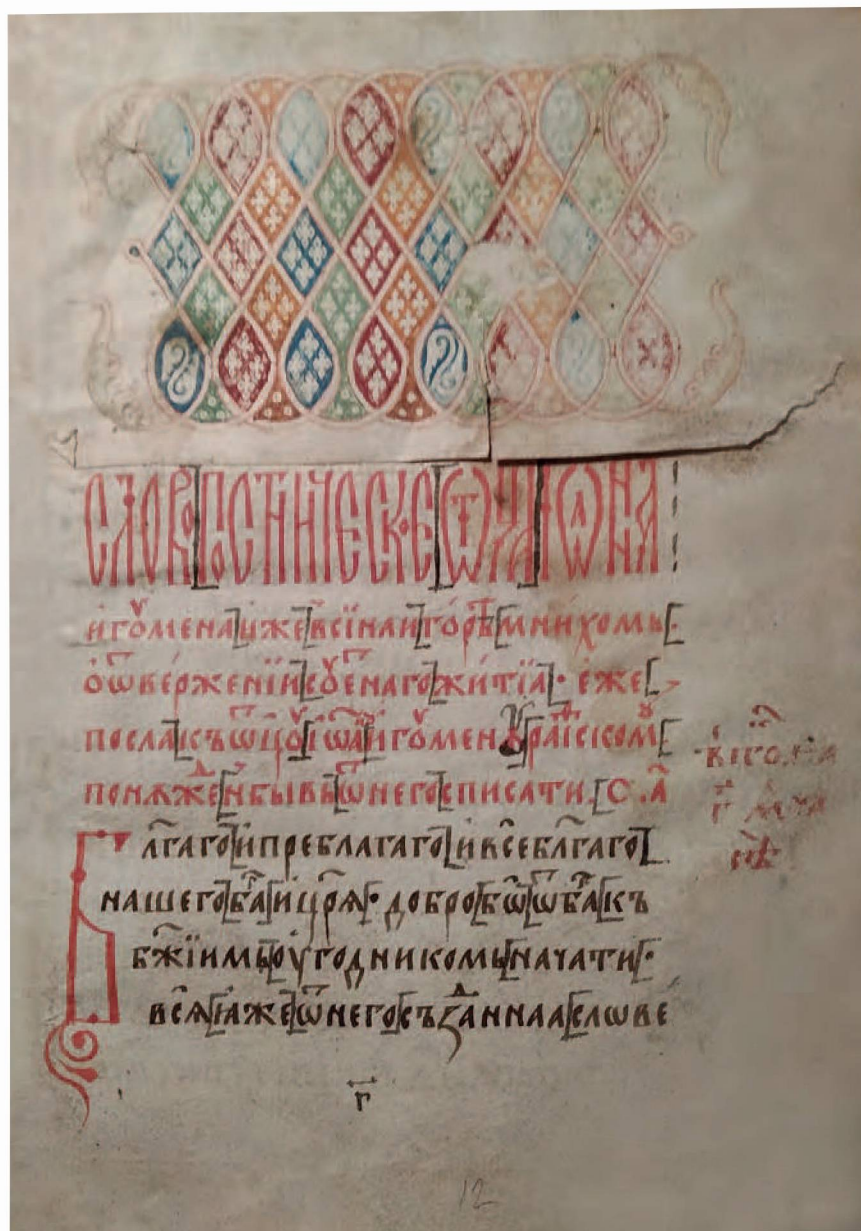 СЛОВО[ПОСТНИЧЕСКОЕ[Ѿ ЧА]ІѠАННА
игꙋ́мена]иже]в̾сїнаи]го́рѣ[мнихомь[·
ѻ҆ѿве́ржении[сꙋ́е́наго]жи́тїа]· е́же[
посла]къѿц҃ꙋ́[їѡа]и҆гꙋ́менꙋ[раи́ѳском[
понꙋже́н]бывы]ѿнего[списати.[С. а҃
Лг҃аго]и҆преблагаго]и҆все́бл҃гаго[
нашего]бг҃а]и҆цр҃ѧ[· добро]бѡ]ѿбг҃а]къ
бж҃їимь]ѹ҆го́дникомь]начати[·
всѧ́[ꙗ҆же]ѿнего[съꙁ́данна[слѡве́
г҃
12